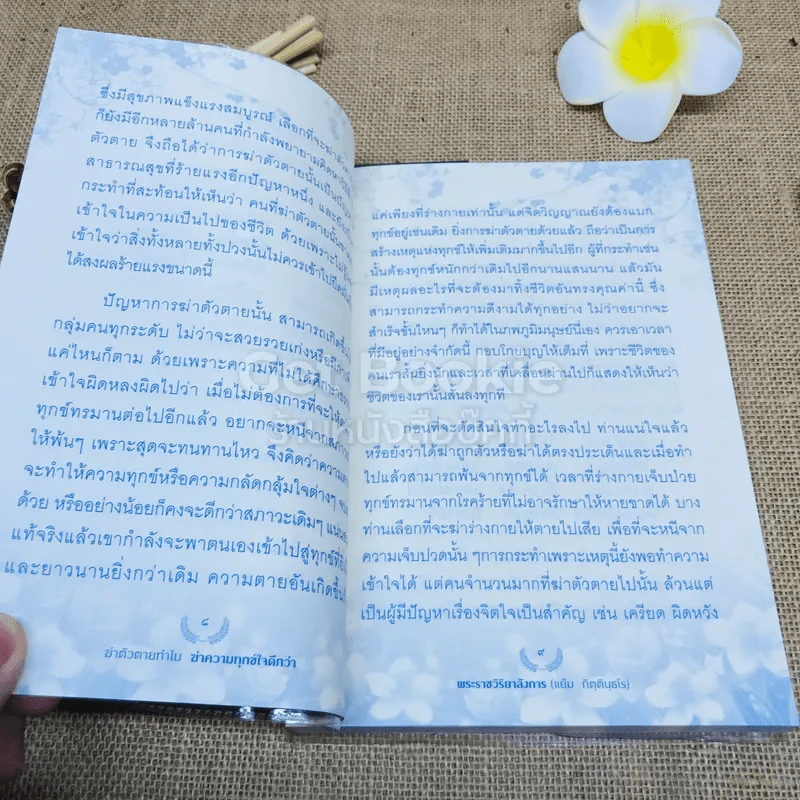 ซึ่งมีสุขภาพแข็งแรงสมบูรณ์ เลือกที่จะฆ่าตัว
ก็ยังมีอีกหลายล้านคนที่กำลังพยายามคิดหาวิธี
ตัวตาย จึงถือได้ว่าการฆ่าตัวตายนั้นเป็น
สาธารณสุขที่ร้ายแรงอีกปัญหาหนึ่ง และยัง
กระทำที่สะท้อนให้เห็นว่า คนที่ฆ่าตัวตายนั้น
เข้าใจในความเป็นไปของชีวิต ด้วยเพราะไม่
เข้าใจว่าสิ่งทั้งหลายทั้งปวงนั้นไม่ควรเข้าไป
ได้ส่งผลร้ายแรงขนาดนี้
ปัญหาการฆ่าตัวตายนั้น สามารถเกิด
กลุ่มคนทุกระดับ ไม่ว่าจะสวยรวยเก่งหรือมี
แค่ไหนก็ตาม ด้วยเพราะความที่ไม่ได้ศึกษา
เข้าใจผิดหลงผิดไปว่า เมื่อไม่ต้องการที่จะให้
ทุกข์ทรมานต่อไปอีกแล้ว อยากจะหนีจาก
ให้พ้นๆ เพราะสุดจะทนทานไหว จึงคิดว่าความ
จะทำให้ความทุกข์หรือความกลัดกลุ้มใจต่างๆ
ด้วย หรืออย่างน้อยก็คงจะดีกว่าสภาวะเดิมๆ
แท้จริงแล้วเขากำลังจะพาตนเองเข้าไปสู่ทุกข์ที่
และยาวนานยิ่งกว่าเดิม ความตายอันเกิดขึ้น
๘
ฆ่าตัวตายทำไม ฆ่าความทุกข์ใจดีกว่า
แค่เพียงที่ร่างกายเท่านั้น แต่จิตวิญญาณยังต้องแบก
ทุกข์อยู่เช่นเดิม ยิ่งการฆ่าตัวตายด้วยแล้ว ถือว่าเป็นการ
สร้างเหตุแห่งทุกข์ให้เพิ่มเติมมากขึ้นไปอีก ผู้ที่กระทำเช่น
นั้นต้องทุกข์หนักกว่าเดิมไปอีกนานแสนนาน แล้วมัน
มีเหตุผลอะไรที่จะต้องมาทิ้งชีวิตอันทรงคุณค่านี้ ซึ่ง
สามารถกระทำความดีงามได้ทุกอย่าง ไม่ว่าอยากจะ
สำเร็จขั้นไหนๆ ก็ทำได้ในภพภูมิมนุษย์นี่เอง ควรเอาเวลา
ที่มีอยู่อย่างจำกัดนี้ กอบโกยบุญให้เต็มที่ เพราะชีวิตของ
คนเราสั้นยิ่งนักและเวลาที่เคลื่อนผ่านไปก็แสดงให้เห็นว่า
ชีวิตของเรานั้นสั้นลงทุกที
ก่อนที่จะตัดสินใจทำอะไรลงไป ท่านแน่ใจแล้ว
หรือยังว่าได้ฆ่าถูกตัวหรือฆ่าได้ตรงประเด็นและเมื่อทำ
ไปแล้วสามารถพ้นจากทุกข์ได้ เวลาที่ร่างกายเจ็บป่วย
ทุกข์ทรมานจากโรคร้ายที่ไม่อาจรักษาให้หายขาดได้ บาง
ท่านเลือกที่จะฆ่าร่างกายให้ตายไปเสีย เพื่อที่จะหนีจาก
ความเจ็บปวดนั้น ๆการกระทำเพราะเหตุนี้ยังพอทำความ
เข้าใจได้ แต่คนจำนวนมากที่ฆ่าตัวตายไปนั้น ล้วนแต่
เป็นผู้มีปัญหาเรื่องจิตใจเป็นสำคัญ เช่น เครียด ผิดหวัง
๙
พระราชวิริยาลังการ (แย้ม กิตฺตินฺธโร)
Got Bookie
ร้านหนังสือบุ๊กกี้